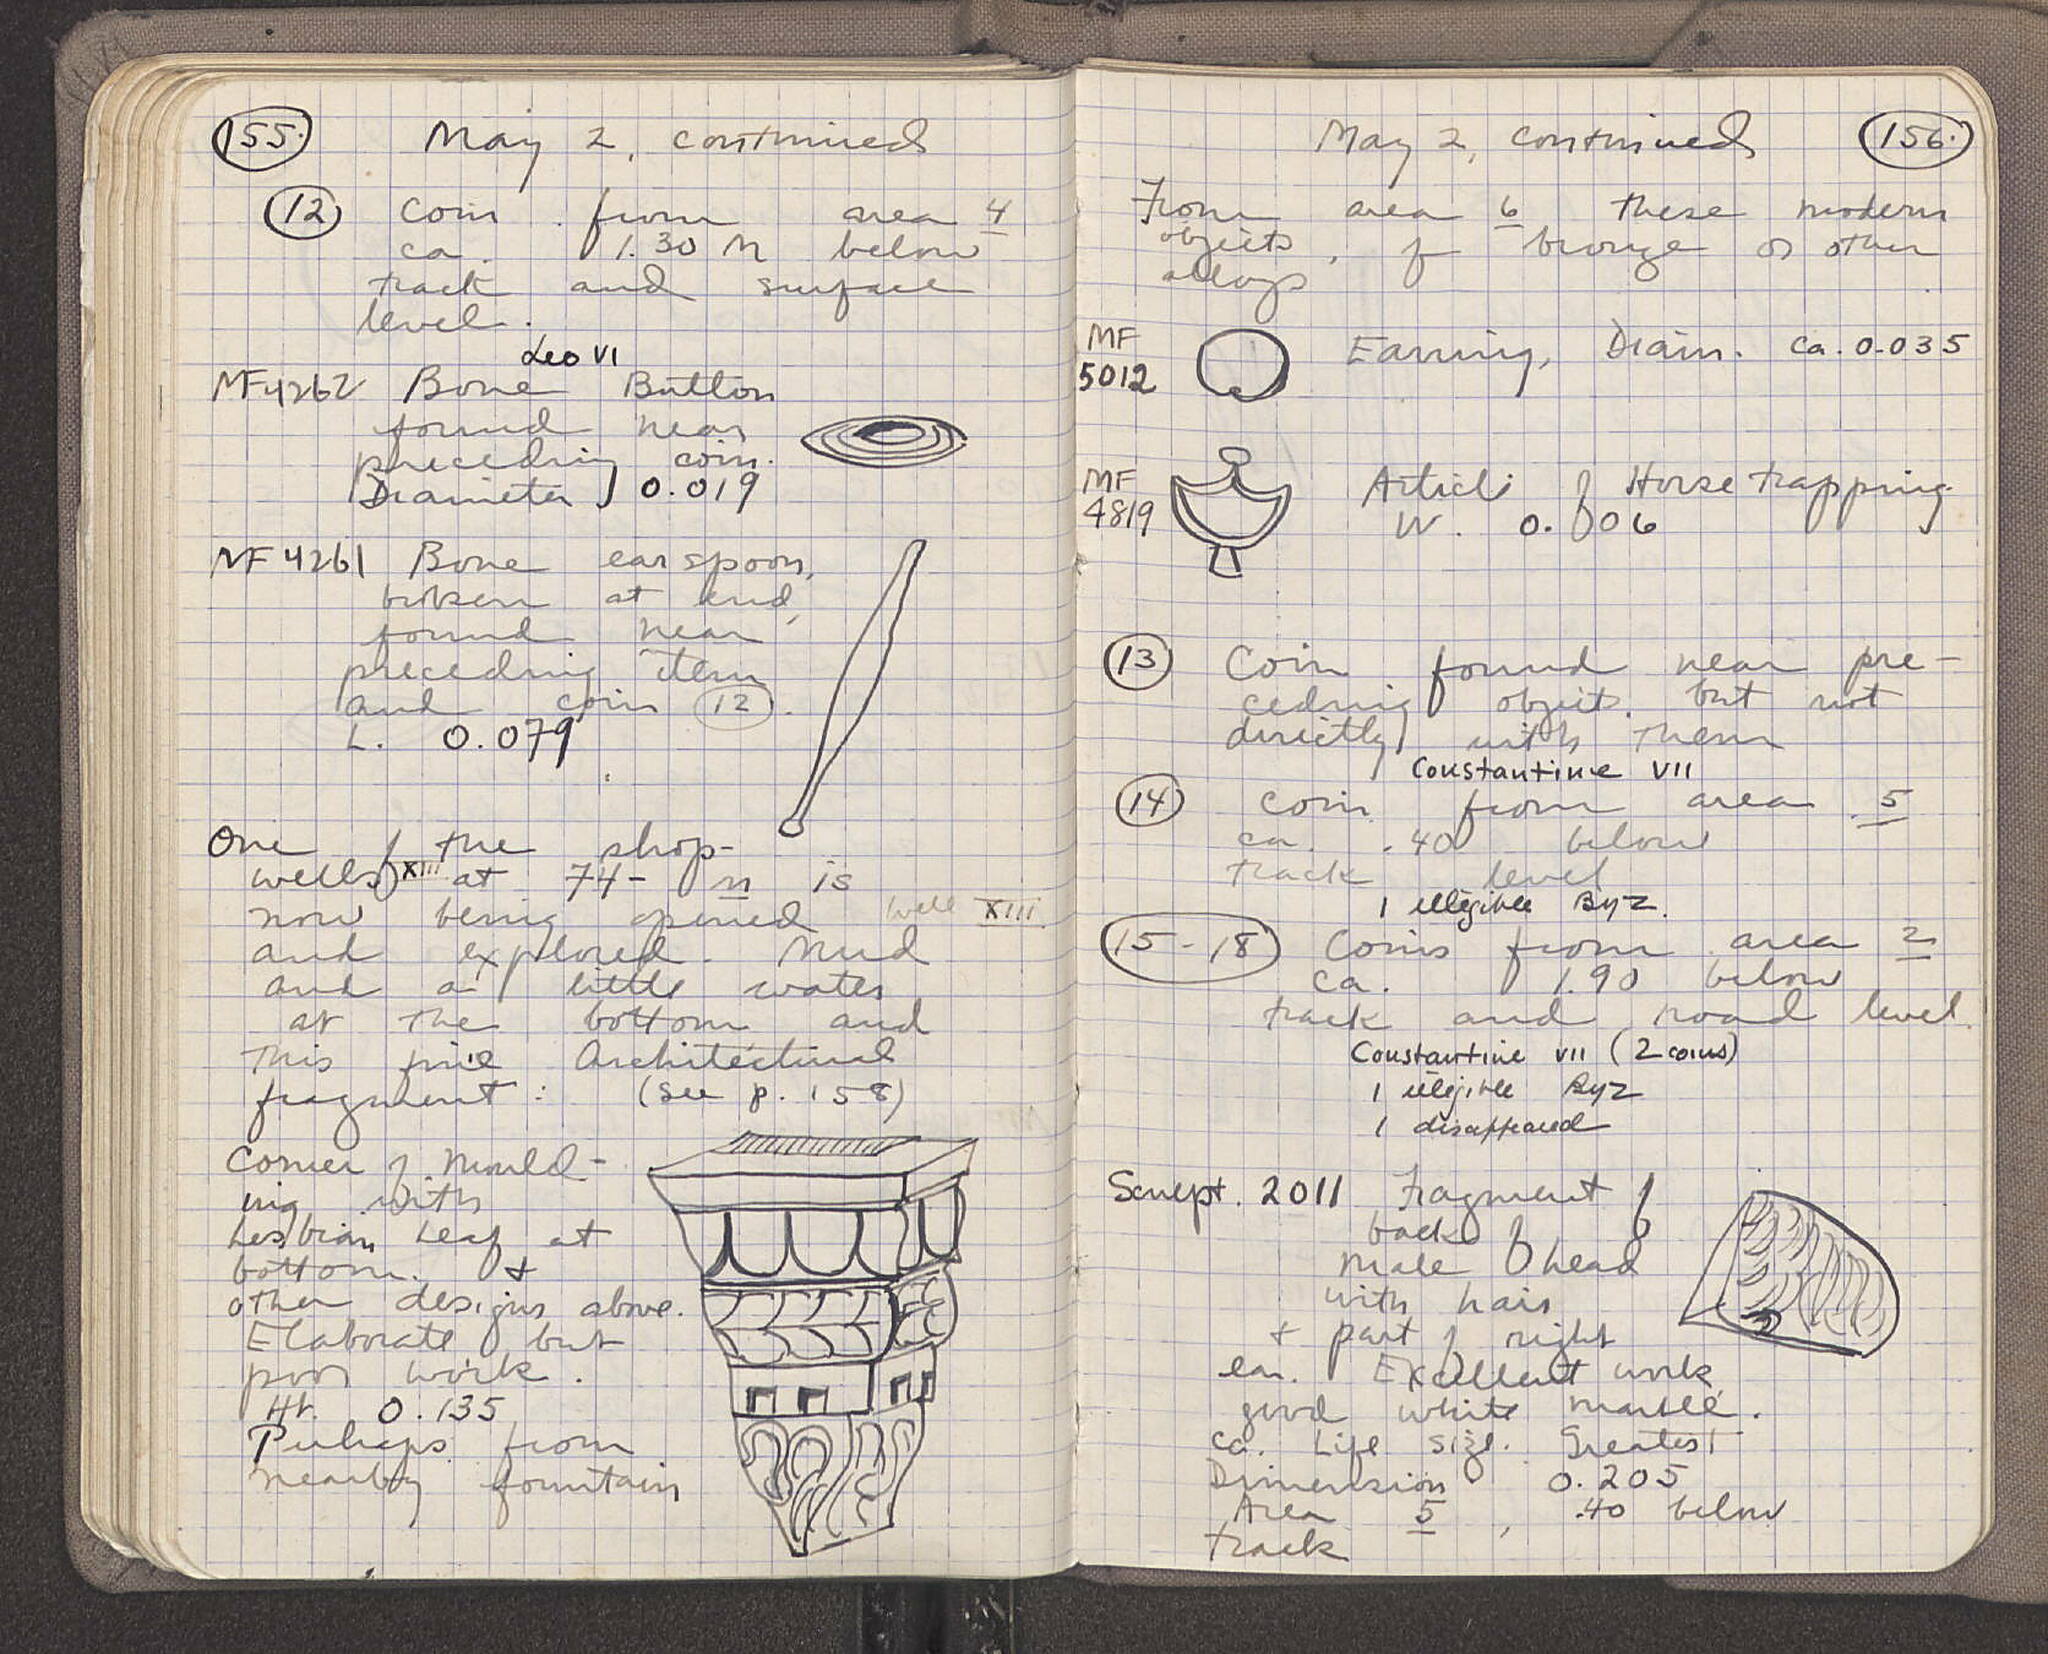 155.
May 2, continued
12 Coin from area 4
ca. 1.30 M below
track and surface
level.
Leo VI
MF 4262 Bone Button
found near
preceding coin.
Diameter 0.019
MF 4261 Bone earspoon,
broken at end,
found near
preceding item
and coin 12.
L. 0.079
One of the shop-
wells XIII at 74- n is
now being opened Well XIII
and explored. Mud
and a little water
at the bottom and
this fine Architectural
fragment: (see p. 158)
Corner of Mould-
ing with
Lesbian Leaf at
bottom. &
other designs above.
Elaborate but
poor work.
Ht. 0.135
Perhaps from
nearby fountain
May 2, continued
156.
From area 6 these modern
objects, of bronze or other
alloys
MF
5012 Earring, Diam. ca. 0.035
MF
4819 Article of Horse trapping
W. 0.06
13 Coin found near pre-
ceding object. but not
directly with them
Constantine VII
14 Coin from area 5
ca. .40 below
track level
1 illegible Byz.
15-18 Coins from area 2
ca. 1.90 below
track and road level.
Constantine VII (2 coins)
1 illegible Byz
1 disappeared
Sculpt. 2011 Fragment of
back of
Male head
with hair
+ part of right
ear. Excellent work,
good white marble.
ca. Life size. Greatest
Dimension 0.205
Area 5, .40 below
track